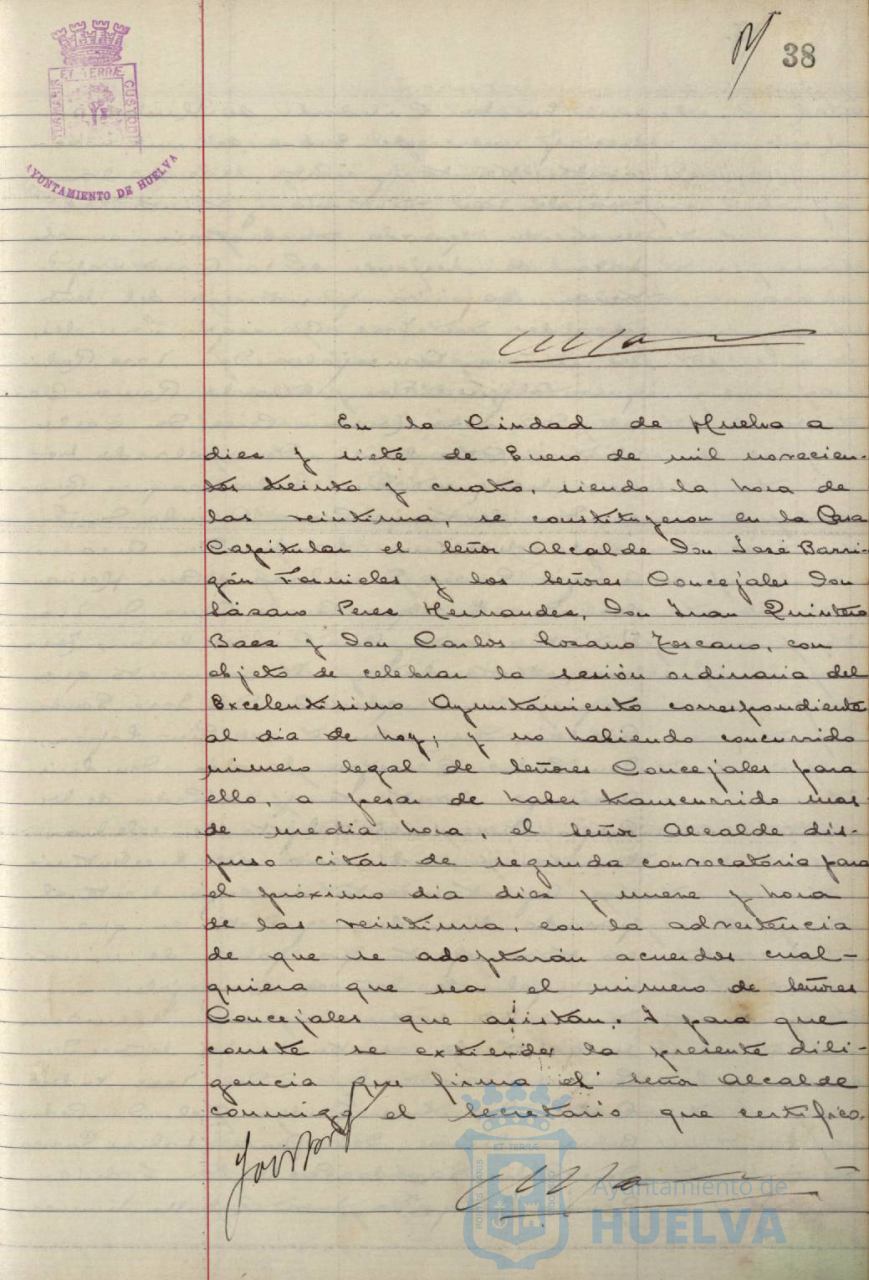 38
ET TERRÆ
CUSTODIA
AYUNTAMIENTO DE HUELVA
En la Ciudad de Huelva a
diez y siete de Enero de mil novecien-
tos treinta y cuatro, siendo la hora de
las veintiuna, se constituyeron en la Casa
Capitular el señor Alcalde Don José Barri-
gón Fornieles y los señores Concejales Don
Lázaro Perez Hernandez, Don Juan Quintero
Baez y Don Carlos Lozano Toscano, con
objeto de celebrar la sesión ordinaria del
Excelentísimo Ayuntamiento correspondiente
al dia de hoy; y no habiendo concurrido
número legal de señores Concejales para
ello, a pesar de haber transcurrido mas
de media hora, el señor Alcalde dis-
puso citar de segunda convocatoria para
el próximo dia diez y nueve y hora
de las veintiuna, con la advertencia
de que se adoptarán acuerdos cual-
quiera que sea el número de señores
Concejales que asistan. Y para que
conste se extiende la presente dili-
gencia que firma el señor Alcalde
conmigo el Secretario que certifico.
Ayuntamiento de
HUELVA